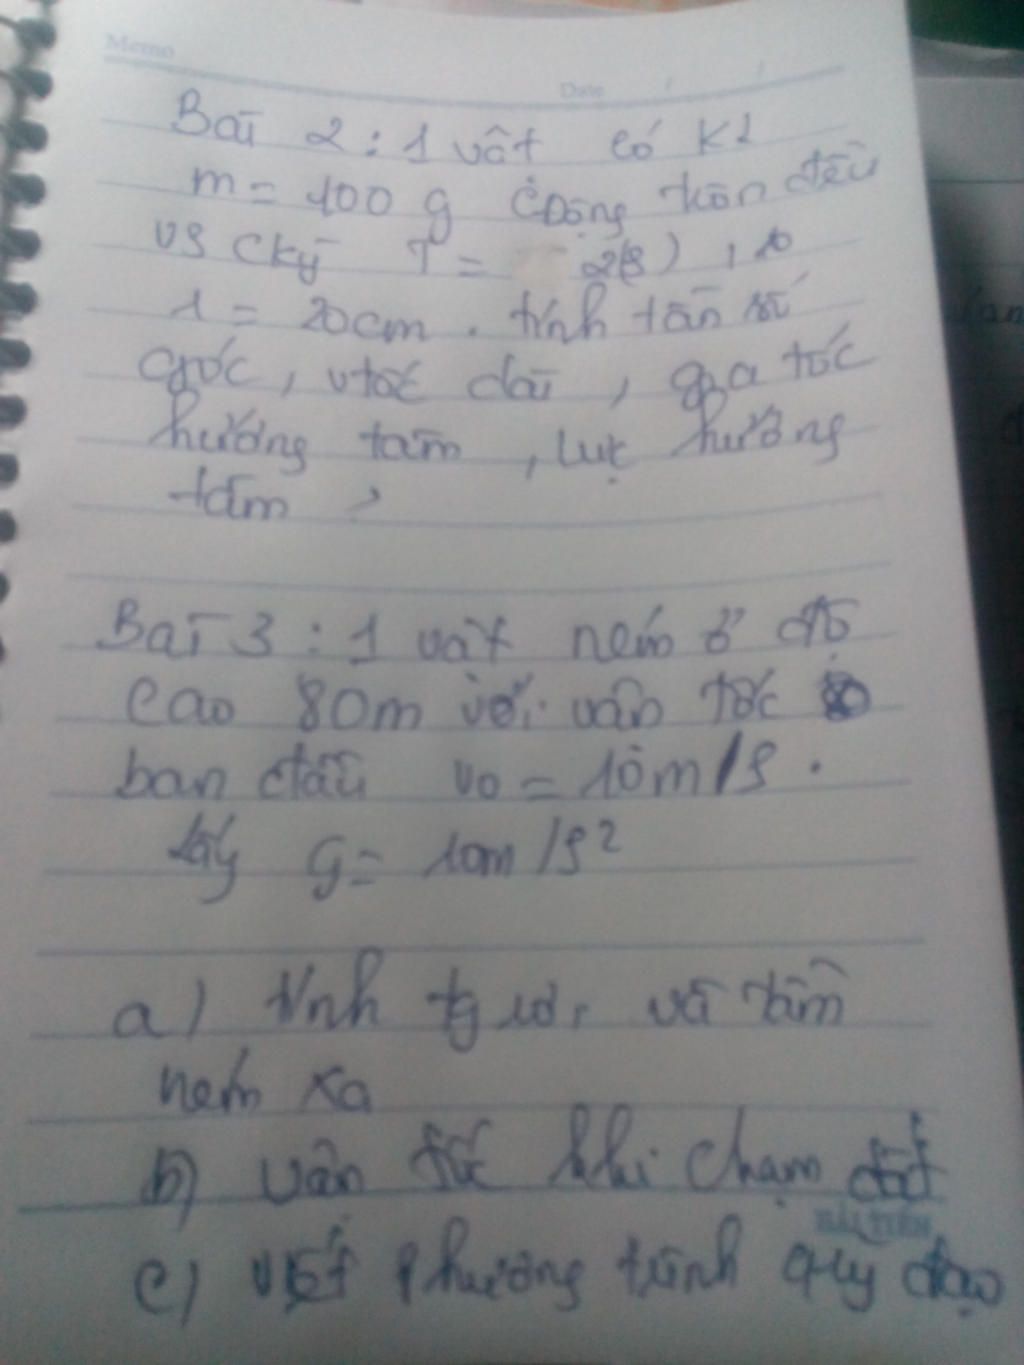 Memo
Date
Bài 2 : 1 vật có KL
m = 100 g CĐộng tròn đều
vs Ckỳ T = 2(s) ,
r = 20cm . tính tần số
góc, vtốc dài , gia tốc
hướng tâm , lực hướng
tâm ?
Bài 3 : 1 vật ném ở độ
cao 80m với vận tốc
ban đầu vo = 10m/s .
lấy g = 10m/s²
a) tính tg rơi và tầm
ném xa
b) vận tốc khi chạm đất
HẢI TIẾN
c) viết phương trình quỹ đạo